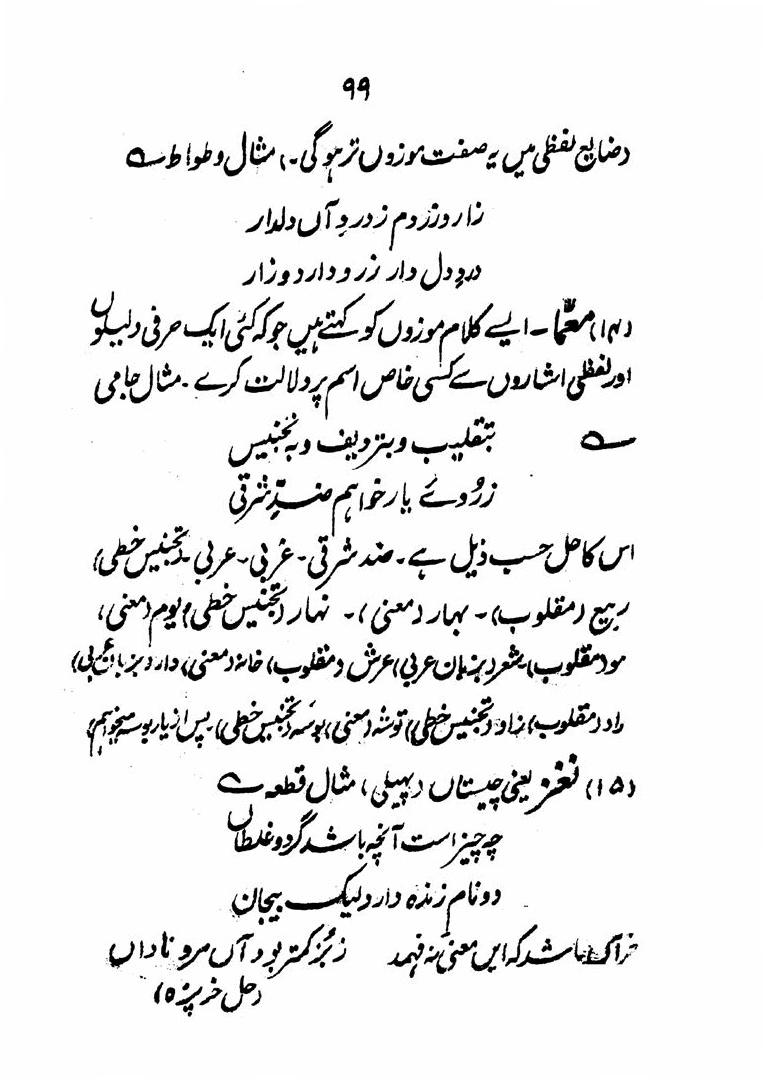 ۹۹
(ضایع لفظی میں یہ صفت موزوں تر ہوگی۔) مثال وطواط ؎
زار و زردم ز دردِ آں دلدار
دردِ دل دار زرد دارد و زار
(۱۴) معمّا۔ ایسے کلام موزوں کو کہتے ہیں جو کہ کئی ایک حرفی دلیلوں
اور لفظی اشاروں سے کسی خاص اسم پر دلالت کرے۔ مثال جامی
؎ بتقلیب و بتردیف و بہ تجنیس
ز روئے یار خواہم ضدِّ شرقی
اس کا حل حسب ذیل ہے۔ ضد شرقی۔ غربی۔ عربی۔ (تجنیس خطی)
ربیع (مقلوب)۔ بہار (معنی)۔ نہار (تجنیس خطی) یوم (معنی)،
مو (مقلوب) شعر (بزبان عربی) عرش (مقلوب) خانہ (معنی) دار (بزبان عربی)
راد (مقلوب) زاد (تجنیس خطی) توشہ (معنی) بوسہ (تجنیس خطی) پس از یار بوسہ میخواہم)
(۱۵) لغز یعنی چیستاں (پہیلی) مثال قطعہ ؎
چہ چیز است آنچہ باشد گرد و غلطاں
دو نام زندہ دارد لیک بیجان
باشد کہ ایں معنی نہ فہمد ز بُز کمتر بود آں مرد ناداں
(حل خرپزہ)